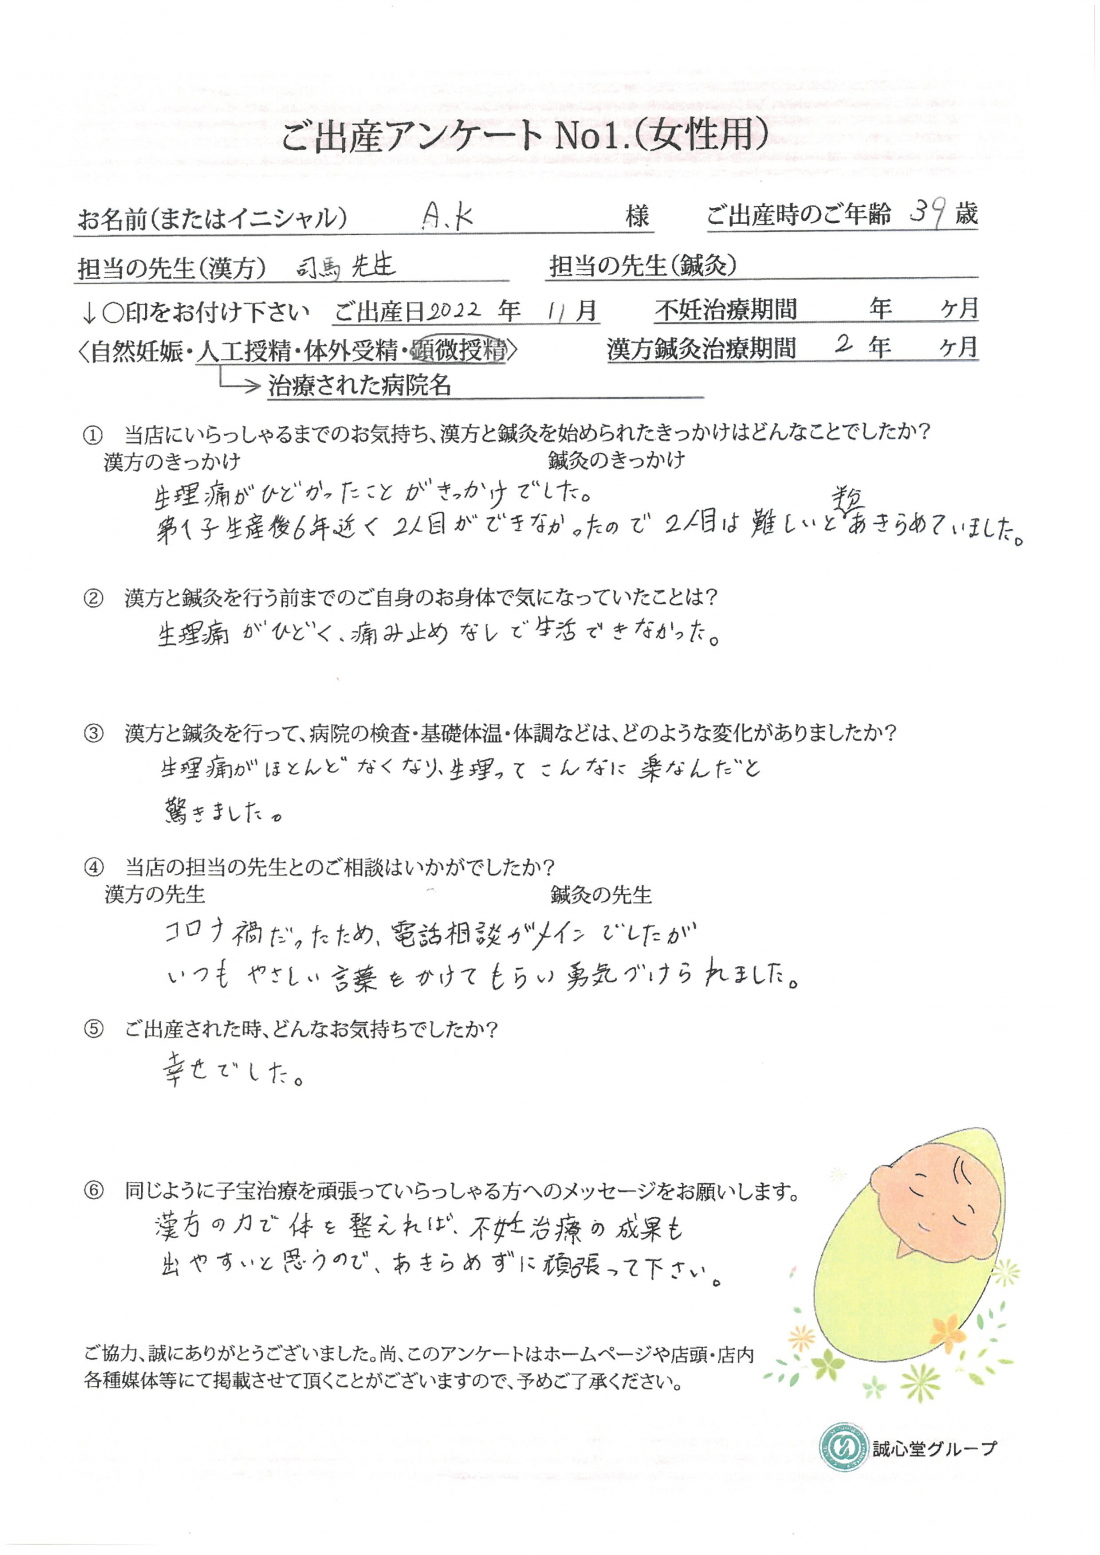 ご出産アンケート No1.(女性用)
お名前(またはイニシャル) A.K 様 ご出産時のご年齢 39 歳
担当の先生(漢方) 司馬先生 担当の先生(鍼灸)
↓○印をお付け下さい ご出産日2022 年 11月 不妊治療期間 年 ヶ月
〈自然妊娠・人工授精・体外受精・顕微授精〉 漢方鍼灸治療期間 2 年 ヶ月
治療された病院名
① 当店にいらっしゃるまでのお気持ち、漢方と鍼灸を始められたきっかけはどんなことでしたか?
漢方のきっかけ 鍼灸のきっかけ
生理痛がひどかったことがきっかけでした。
第1子生産後6年近く2人目ができなかったので2人目は難しいと半分あきらめていました。
② 漢方と鍼灸を行う前までのご自身のお身体で気になっていたことは?
生理痛がひどく、痛み止めなしで生活できなかった。
③ 漢方と鍼灸を行って、病院の検査・基礎体温・体調などは、どのような変化がありましたか?
生理痛がほとんどなくなり、生理ってこんなに楽なんだと
驚きました。
④ 当店の担当の先生とのご相談はいかがでしたか?
漢方の先生 鍼灸の先生
コロナ禍だったため、電話相談がメインでしたが
いつもやさしい言葉をかけてもらい勇気づけられました。
⑤ ご出産された時、どんなお気持ちでしたか?
幸せでした。
⑥ 同じように子宝治療を頑張っていらっしゃる方へのメッセージをお願いします。
漢方の力で体を整えれば、不妊治療の成果も
出やすいと思うので、あきらめずに頑張って下さい。
ご協力、誠にありがとうございました。尚、このアンケートはホームページや店頭・店内
各種媒体等にて掲載させて頂くことがございますので、予めご了承ください。
誠心堂グループ